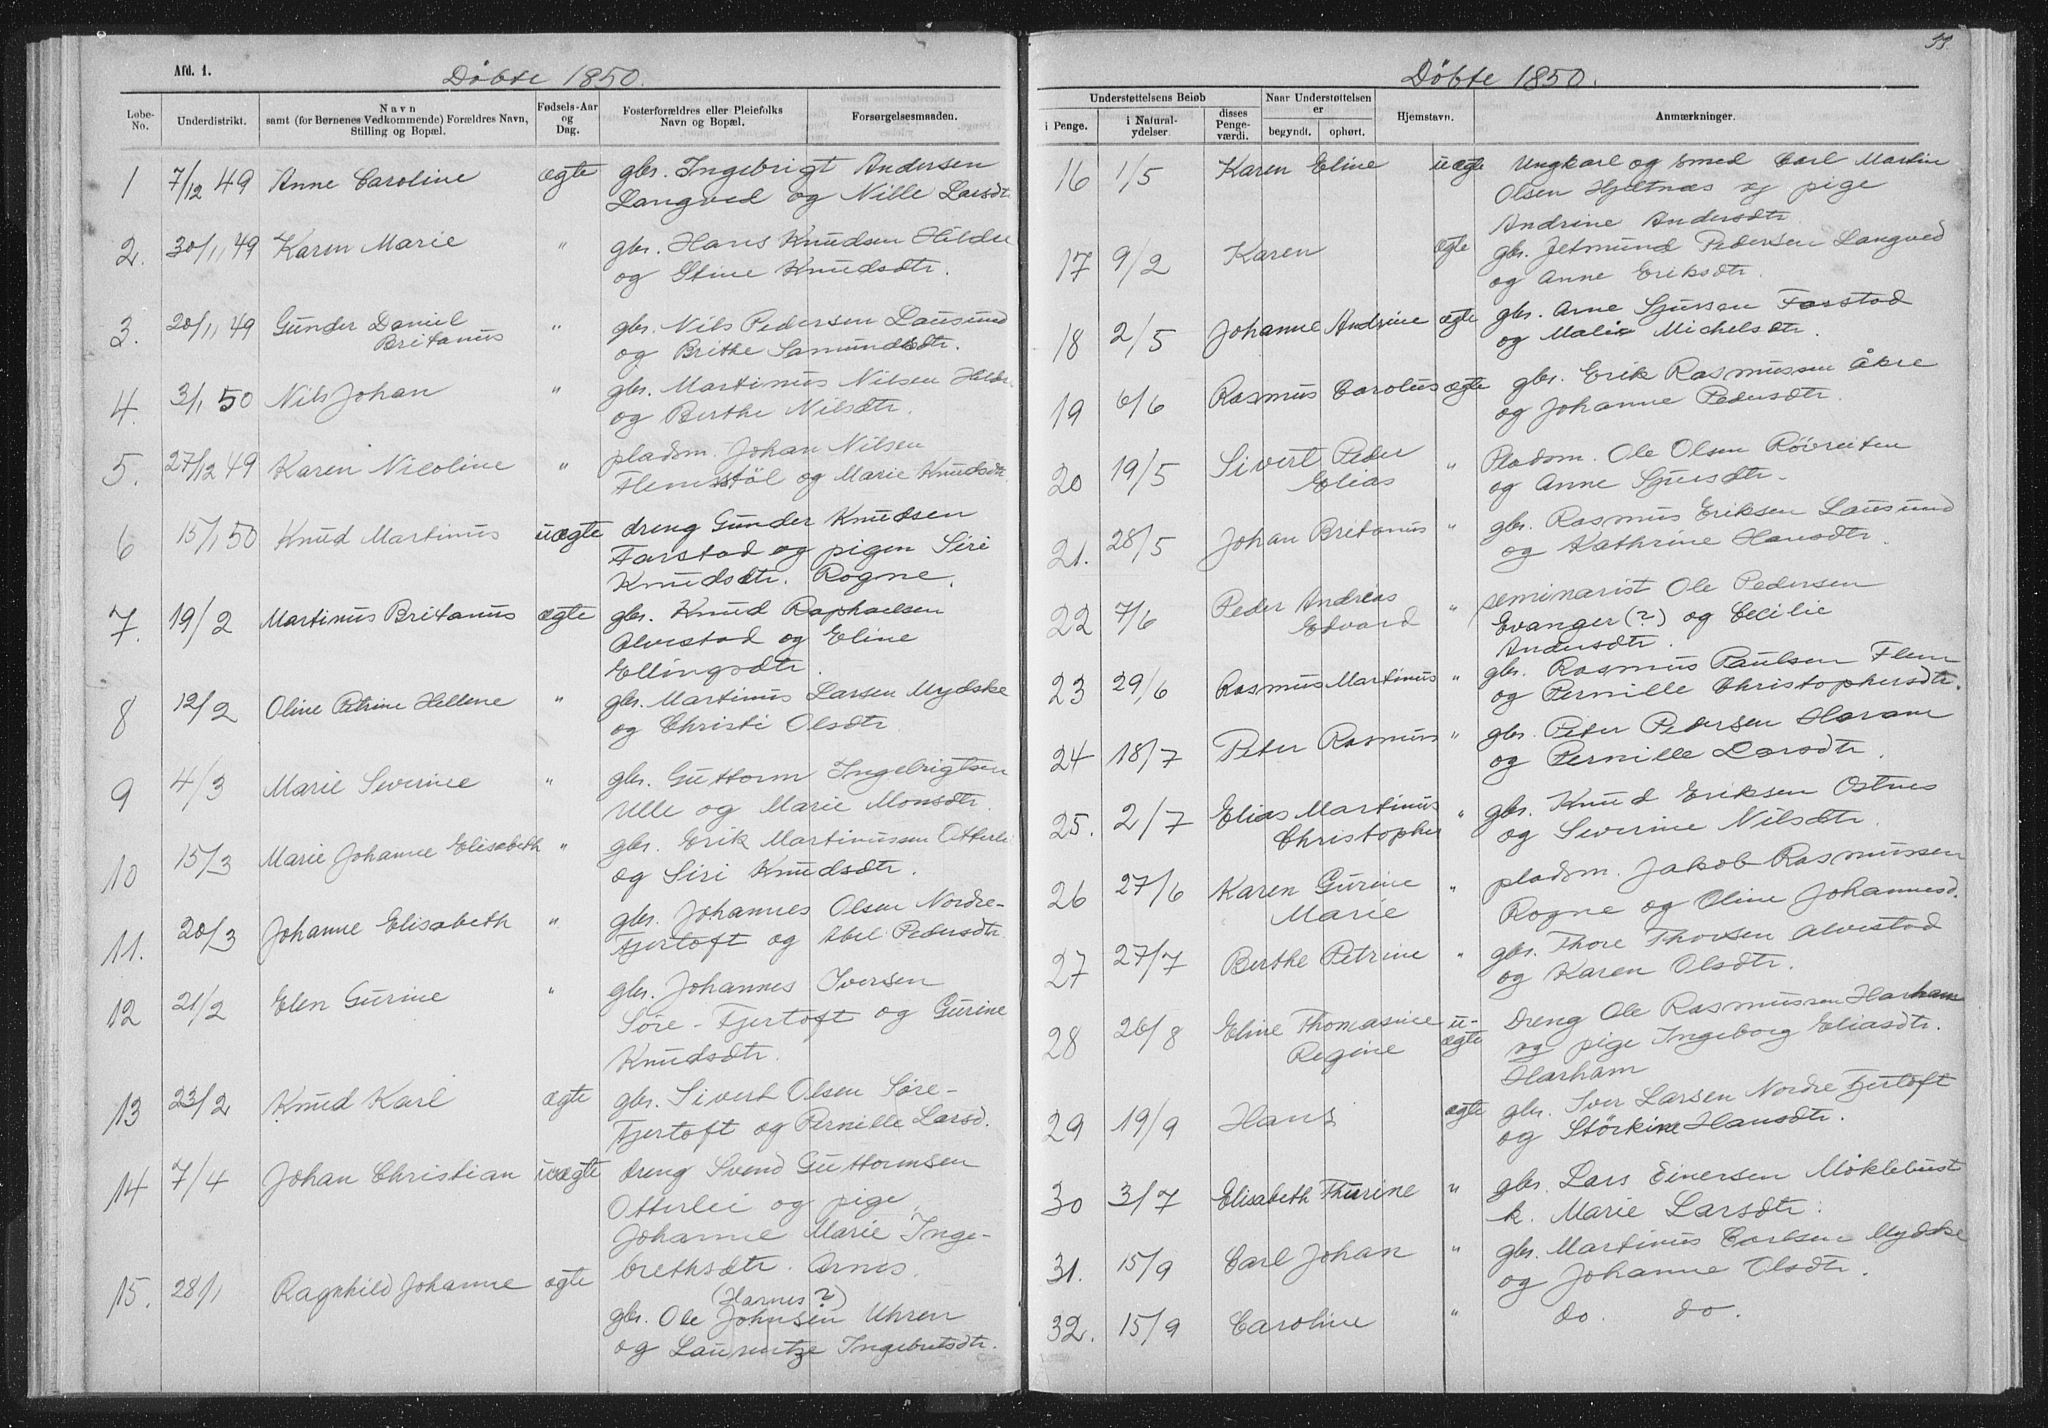 Afd. 1.
Døbte 1850.
Løbe-No.
Underdistrikt.
Navn
samt (for Børnenes Vedkommende) Forældres Navn,
Stilling og Bopæl.
Fødsels-Aar
og
Dag.
Fosterforældres eller Pleiefolks
Navn og Bopæl.
Forsørgelsesmaaden.
1 7/12 49 Anne Caroline ægte gbr. Ingebrigt Andersen
Langved og Nille Larsdtr
2. 30/11 49 Karen Marie " gbr. Hans Knudsen Hildre
og Stine Knudsdtr.
3. 20/11 49 Gunder Daniel " gbr. Nils Pedersen Lausund
Britanus og Brithe Samundsdtr.
4. 3/1 50 Nils Johan " gbr. Martinus Nilsen Hildre
og Berthe Nilsdtr.
5. 27/12 49 Karen Nicoline " pladsm. Johan Nilsen
Flemsstøl og Marie Knudsdtr
6 15/1 50 Knud Martinus uægte dreng Gunder Knudsen
Farstad og pigen Siri
Knudsdtr. Rogne.
7. 19/2 Martinus Britanus ægte gbr. Knud Raphaelsen
Alvestad og Eline
Ellingsdtr.
8 12/2 Oline Petrine Hellene " gbr. Martinus Larsen Mydske
og Christi Olsdtr.
9 4/3 Marie Severine " gbr. Guttorm Ingebrigtsen
Ulle og Marie Monsdtr.
10 15/3 Marie Johanne Elisabeth " gbr. Erik Martinussen Otterlei
og Siri Knudsdtr.
11. 20/3 Johanne Elisabeth " gbr. Johannes Olsen Nordre-
Fjertoft og Abel Pedersdtr.
12 21/2 Elen Gurine " gbr. Johannes Iversen
Søre-Fjertoft og Gurine
Knudsdtr.
13 23/2 Knud Karl ægte gbr. Sivert Olsen Søre-
Fjertoft og Pernille Larsd.
14 7/4 Johan Christian uægte dreng Svend Guttormsen
Otterlei og pige
Johanne Marie Inge-
brethsdtr. Arnes.
(Harnes?)
15. 28/1 Ragnhild Johanne ægte gbr. Ole Johnsen Uhren
og Laurentze Ingebretsdtr.
33.
Døbte 1850.
Understøttelsens Beløb
i Penge.
i Natural-
ydelser.
disses
Penge-
værdi.
Naar Understøttelsen
er
begyndt.
ophørt.
Hjemstavn.
Anmærkninger.
16 1/5 Karen Eline uægte Ungkarl og smed Carl Martin
Olsen Hjeltnæs og pige
Andrine Andersdtr.
17 9/2 Karen ægte gbr. Jetmund Pedersen Langved
og Anne Eriksdtr.
18 2/5 Johanne Andrine ægte gbr. Arne Sjursen Farstad
og Malie Michelsdtr.
19 6/6 Rasmus Carolus ægte gbr. Erik Rasmussen Åkre
og Johanne Pedersdtr.
20 19/5 Sivert Peder " Pladsm. Ole Olsen Røvreiten
Elias og Anne Sjursdtr.
21. 28/5 Johan Britanus " gbr. Rasmus Eriksen Lausund
og Kathrine Hansdtr.
22 7/6 Peder Andreas " seminarist Ole Pedersen
Edvard Evanger (?) og Cecilie
Andersdtr.
23 29/6 Rasmus Martinus " gbr. Rasmus Paulsen Flem
og Pernille Christophersdtr.
24 18/7 Peter Rasmus " gbr. Peter Pedersen Haram
og Pernille Larsdtr.
25. 2/7 Elias Martinus " gbr. Knud Eriksen Ostnes
Christopher og Severine Nilsdtr.
26 27/6 Karen Gurine " pladsm. Jakob Rasmussen
Marie Rogne og Oline Johannesd.
27 27/7 Berthe Petrine " gbr. Thore Thorsen Alvestad
og Karen Olsdtr.
28 26/8 Eline Thomasine u- Dreng Ole Rasmussen Harham
Regine ægte og pige Ingeborg Eliasdtr.
Harham
29 19/9 Hans ægte gbr. Iver Larsen Nordre Fjertoft
og Størkine Hansdtr.
30 3/7 Elisabeth Thurine " gbr. Lars Einersen Møklebust
k. Marie Larsdtr.
31. 15/9 Carl Johan " gbr. Martinus Carlsen Mydske
og Johanne Olsdtr.
32. 15/9 Caroline " do. do.